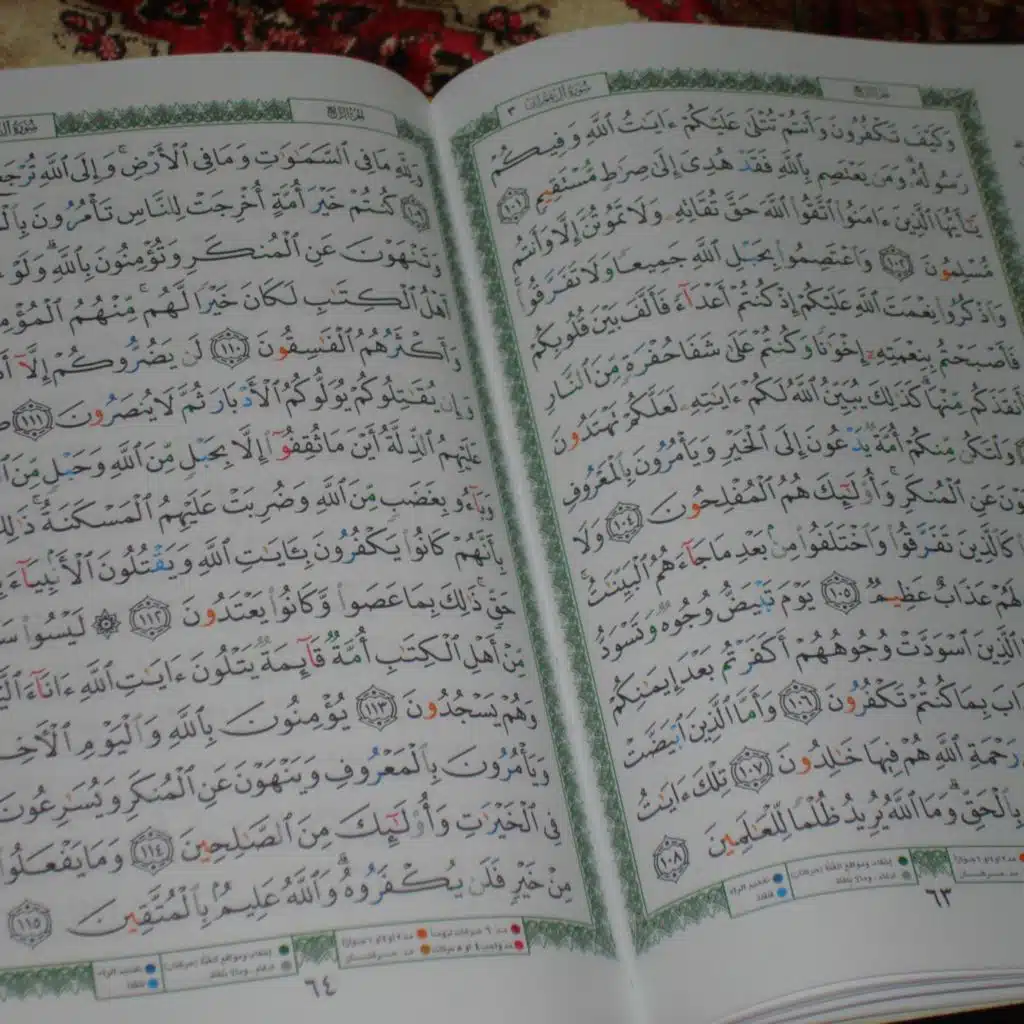 سُورَةُ آلِ عِمْرَانَ ٣
الجزء الرابع
وَكَيْفَ تَكْفُرُونَ وَأَنتُمْ تُتْلَىٰ عَلَيْكُمْ ءَايَـٰتُ ٱللَّهِ وَفِيكُمْ
رَسُولُهُۥ ۗ وَمَن يَعْتَصِم بِٱللَّهِ فَقَدْ هُدِىَ إِلَىٰ صِرَٰطٍ مُّسْتَقِيمٍ ١٠١
يَـٰٓأَيُّهَا ٱلَّذِينَ ءَامَنُوا۟ ٱتَّقُوا۟ ٱللَّهَ حَقَّ تُقَاتِهِۦ وَلَا تَمُوتُنَّ إِلَّا وَأَنتُم
مُّسْلِمُونَ ١٠٢ وَٱعْتَصِمُوا۟ بِحَبْلِ ٱللَّهِ جَمِيعًا وَلَا تَفَرَّقُوا۟ ۚ
وَٱذْكُرُوا۟ نِعْمَتَ ٱللَّهِ عَلَيْكُمْ إِذْ كُنتُمْ أَعْدَآءً فَأَلَّفَ بَيْنَ قُلُوبِكُمْ
فَأَصْبَحْتُم بِنِعْمَتِهِۦٓ إِخْوَٰنًا وَكُنتُمْ عَلَىٰ شَفَا حُفْرَةٍ مِّنَ ٱلنَّارِ
فَأَنقَذَكُم مِّنْهَا ۗ كَذَٰلِكَ يُبَيِّنُ ٱللَّهُ لَكُمْ ءَايَـٰتِهِۦ لَعَلَّكُمْ تَهْتَدُونَ
وَلْتَكُن مِّنكُمْ أُمَّةٌ يَدْعُونَ إِلَى ٱلْخَيْرِ وَيَأْمُرُونَ بِٱلْمَعْرُوفِ
وْنَ عَنِ ٱلْمُنكَرِ ۚ وَأُو۟لَـٰٓئِكَ هُمُ ٱلْمُفْلِحُونَ ١٠٤ وَلَا
كَٱلَّذِينَ تَفَرَّقُوا۟ وَٱخْتَلَفُوا۟ مِنۢ بَعْدِ مَا جَآءَهُمُ ٱلْبَيِّنَـٰتُ ۚ
لَهُمْ عَذَابٌ عَظِيمٌ ١٠٥ يَوْمَ تَبْيَضُّ وُجُوهٌ وَتَسْوَدُّ
ٱلَّذِينَ ٱسْوَدَّتْ وُجُوهُهُمْ أَكَفَرْتُم بَعْدَ إِيمَـٰنِكُمْ
ابَ بِمَا كُنتُمْ تَكْفُرُونَ ١٠٦ وَأَمَّا ٱلَّذِينَ ٱبْيَضَّتْ
رَحْمَةِ ٱللَّهِ هُمْ فِيهَا خَـٰلِدُونَ ١٠٧ تِلْكَ ءَايَـٰتُ
بِٱلْحَقِّ ۗ وَمَا ٱللَّهُ يُرِيدُ ظُلْمًا لِّلْعَـٰلَمِينَ ١٠٨
٦٣
الجزء الرابع
وَلِلَّهِ مَا فِى ٱلسَّمَـٰوَٰتِ وَمَا فِى ٱلْأَرْضِ ۚ وَإِلَى ٱللَّهِ تُرْجَعُ
١٠٩ كُنتُمْ خَيْرَ أُمَّةٍ أُخْرِجَتْ لِلنَّاسِ تَأْمُرُونَ
وَتَنْهَوْنَ عَنِ ٱلْمُنكَرِ وَتُؤْمِنُونَ بِٱللَّهِ ۗ وَلَوْ
أَهْلُ ٱلْكِتَـٰبِ لَكَانَ خَيْرًا لَّهُم ۚ مِّنْهُمُ
وَأَكْثَرُهُمُ ٱلْفَـٰسِقُونَ ١١٠ لَن يَضُرُّوكُمْ إِلَّآ
وَإِن يُقَـٰتِلُوكُمْ يُوَلُّوكُمُ ٱلْأَدْبَارَ ثُمَّ لَا يُنصَرُونَ ١١١
عَلَيْهِمُ ٱلذِّلَّةُ أَيْنَ مَا ثُقِفُوٓا۟ إِلَّا بِحَبْلٍ مِّنَ ٱللَّهِ وَحَبْلٍ مِّنَ
وَبَآءُو بِغَضَبٍ مِّنَ ٱللَّهِ وَضُرِبَتْ عَلَيْهِمُ ٱلْمَسْكَنَةُ ۚ ذَٰلِكَ
بِأَنَّهُمْ كَانُوا۟ يَكْفُرُونَ بِـَٔايَـٰتِ ٱللَّهِ وَيَقْتُلُونَ ٱلْأَنۢبِيَآءَ
حَقٍّ ۚ ذَٰلِكَ بِمَا عَصَوا۟ وَّكَانُوا۟ يَعْتَدُونَ ١١٢ ۞ لَيْسُوا۟
مِّنْ أَهْلِ ٱلْكِتَـٰبِ أُمَّةٌ قَآئِمَةٌ يَتْلُونَ ءَايَـٰتِ ٱللَّهِ ءَانَآءَ
وَهُمْ يَسْجُدُونَ ١١٣ يُؤْمِنُونَ بِٱللَّهِ وَٱلْيَوْمِ ٱلْـَٔاخِ
وَيَأْمُرُونَ بِٱلْمَعْرُوفِ وَيَنْهَوْنَ عَنِ ٱلْمُنكَرِ وَيُسَـٰرِعُونَ
فِى ٱلْخَيْرَٰتِ وَأُو۟لَـٰٓئِكَ مِنَ ٱلصَّـٰلِحِينَ ١١٤ وَمَا يَفْعَلُوا۟
مِنْ خَيْرٍ فَلَن يُكْفَرُوهُ ۗ وَٱللَّهُ عَلِيمٌۢ بِٱلْمُتَّقِينَ ١١٥
٦٤